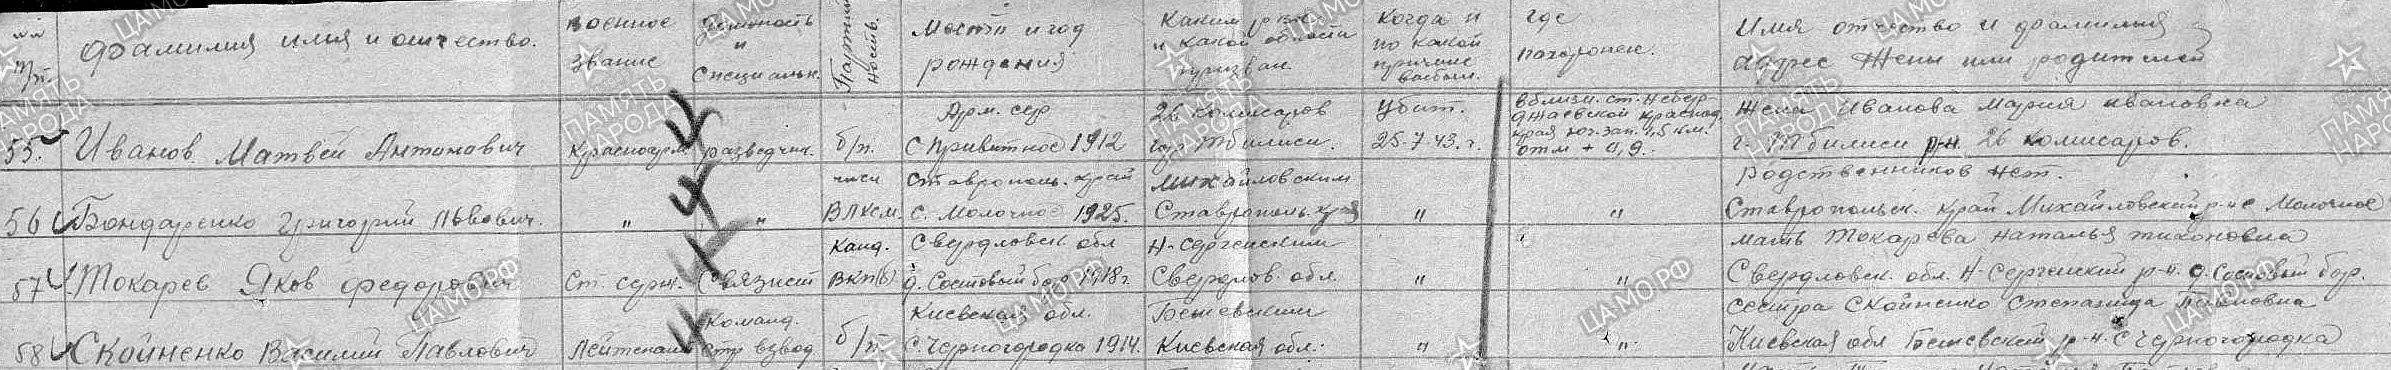 №№ п/п. Фамилия имя и отчество. Военное звание Должность и специальн. Партийность. Место и год рождения Каким р-ном и какой области призван Когда и по какой причине выбыл. Где похоронен. Имя отчество и фамилия адрес жены или родителей
55. Иванов Матвей Антонович Красноарм. разведчик. б/п. Арм. сср с Привитное 1912 26 Комисаров гор Тбилиси. Убит. 25.7.43.г. Вблизи. ст. края юг. зап. 1,5 км. отм + 0,9. Жена Иванова Мария Ивановна г. Тбилиси р-н. 26 Комисаров.
56 Бондаренко Григорий Львович. " " член ВЛКСМ. Ставрополь. край с. Молочное 1925. Михайловским Ставрополь. край " " Родственников нет. Ставропольск. край Михайловский р-н с Молочное
57 Токарев Яков Федорович Ст. серж. Связист Канд. ВКП(б) Свердловск обл д. Сосновый бор 1918г. Н-Сергенским Свердлов. обл. " " мать Токарева Наталья Тихоновна Свердловск. обл. Н-Сергенский р-н. д. Сосновый бор.
58 Скойненко Василий Павлович Лейтенант Команд. стр взвод б/п Киевская обл. с. Черногородка 1914. Бышевским Киевская обл. " " сестра Скойненко Степанида Павловна Киевская обл Бышевский р-н. с Черногородка
ПАМЯТЬ НАРОДА
ЦАМО.РФ